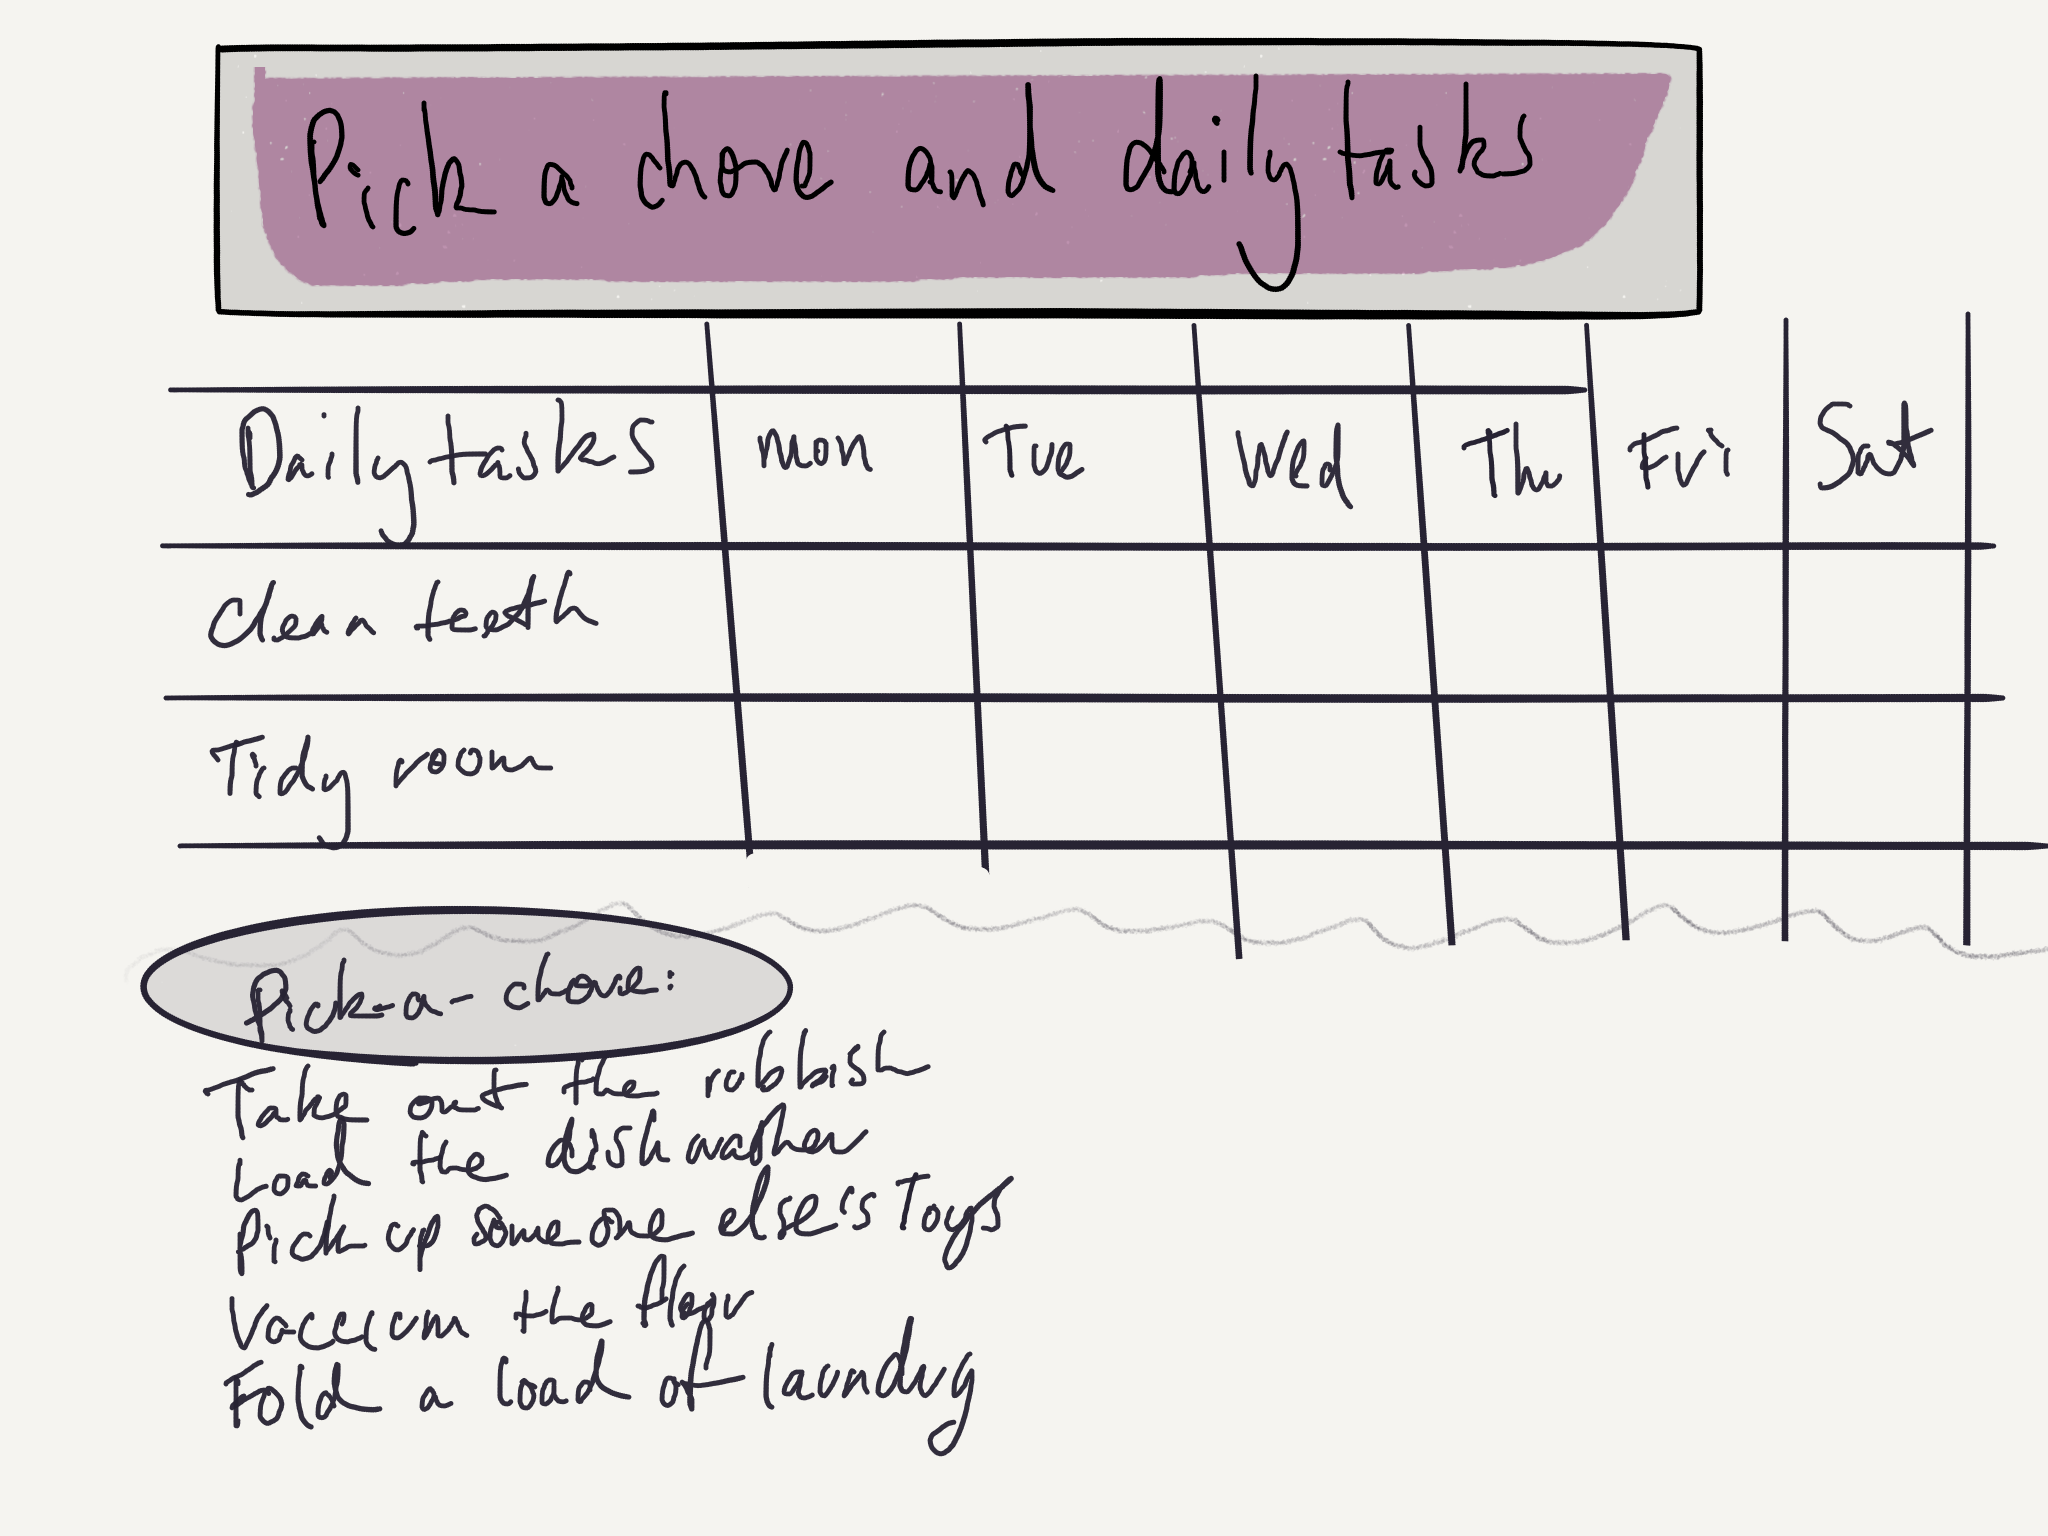 Pick a chore and daily tasks
Daily tasks mon Tue Wed Thu Fri Sat
Clean teeth
Tidy room
Pick-a-chore:
Take out the rubbish
Load the dishwasher
Pick up someone else's Toys
Vaccium the floor
Fold a load of laundry